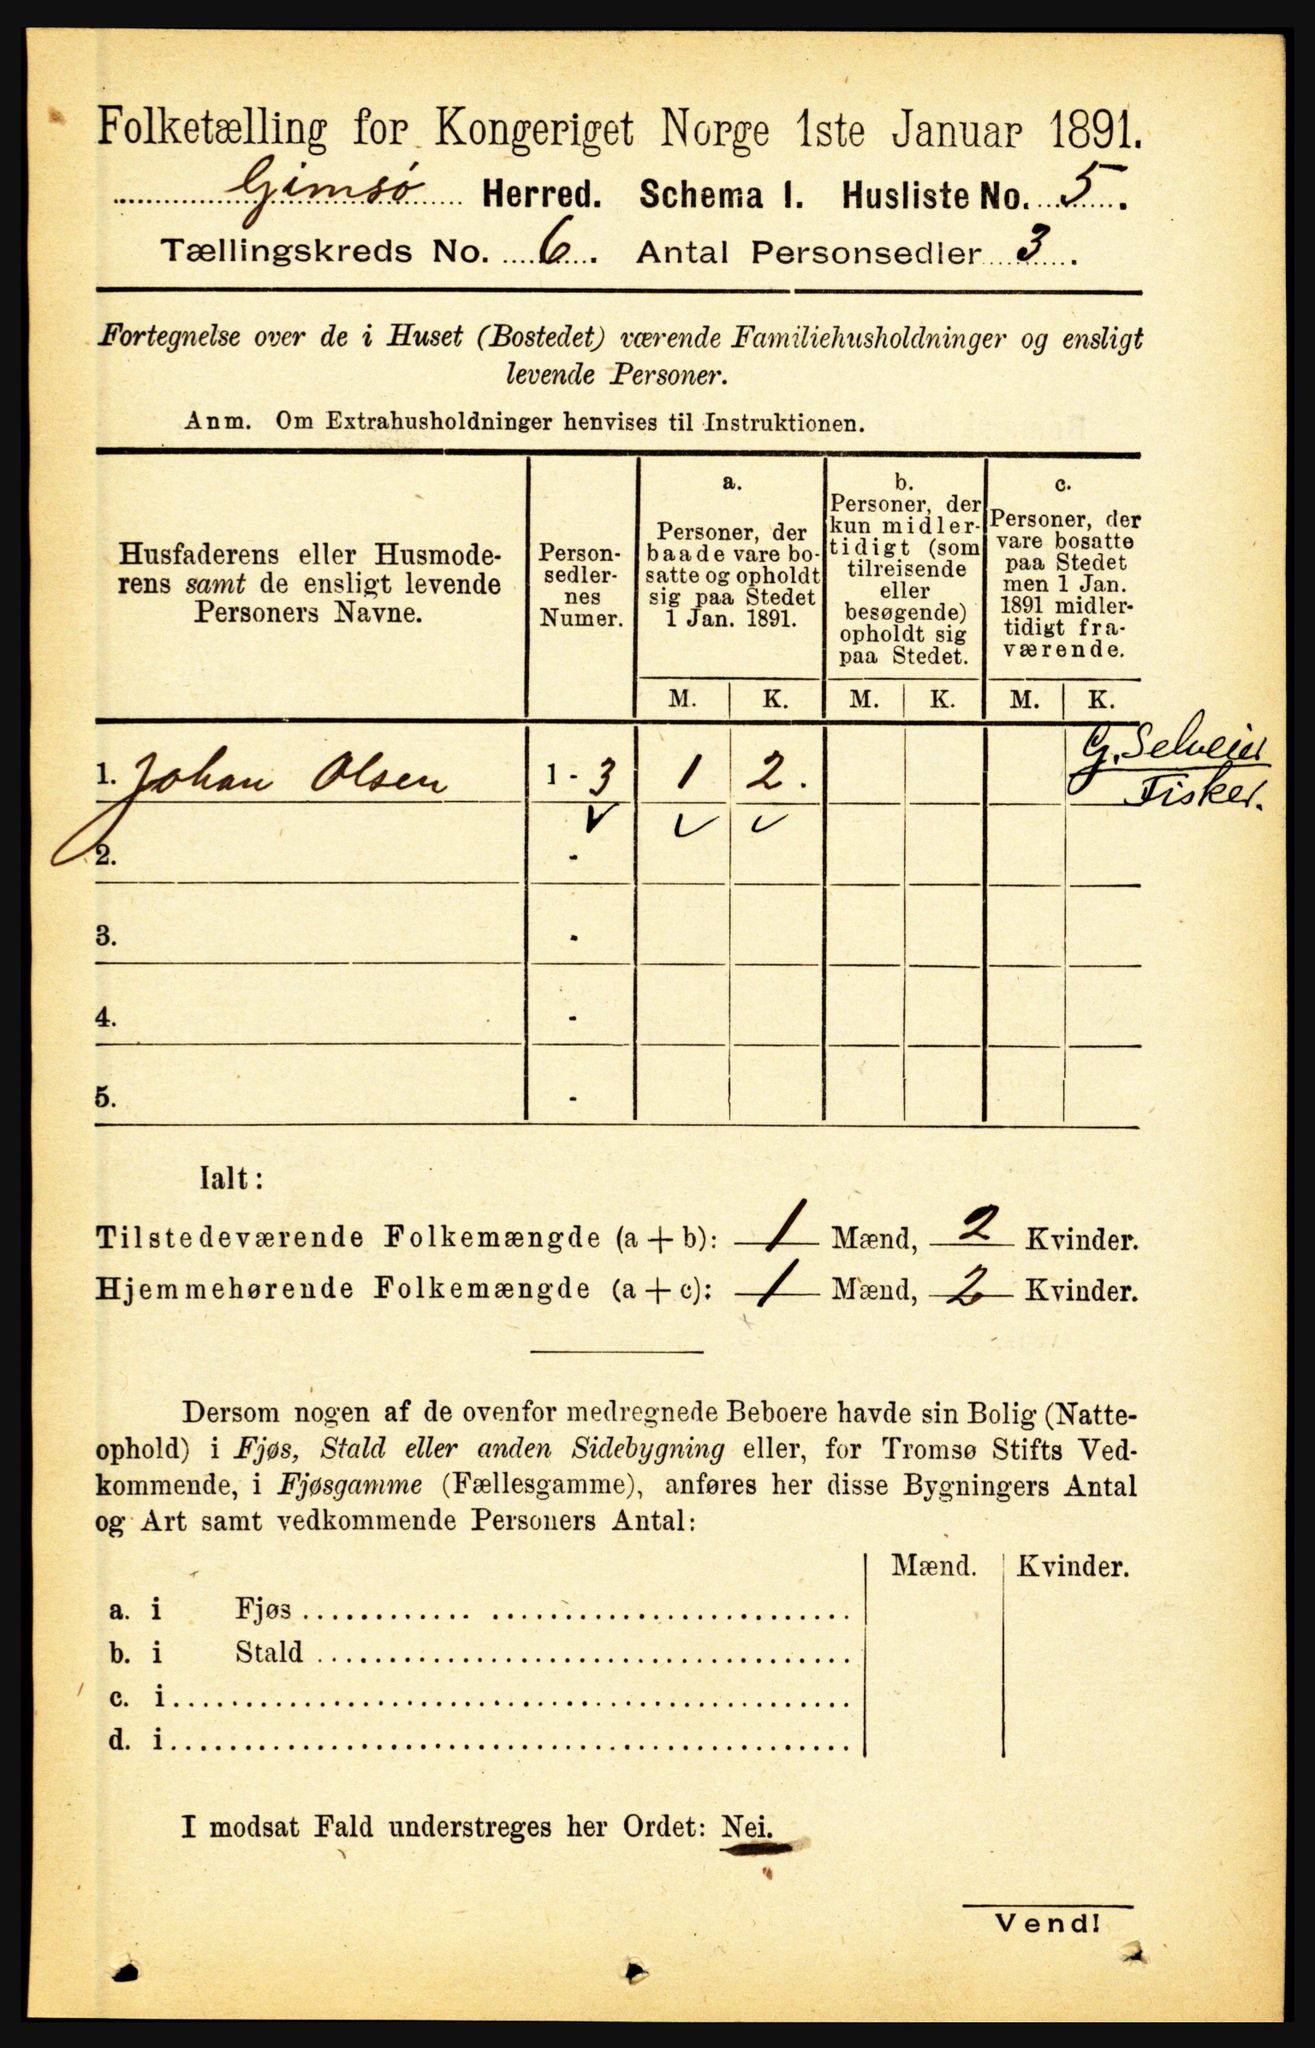 Folketælling for Kongeriget Norge 1ste Januar 1891.
Gimsø Herred. Schema I. Husliste No. 5.
Tællingskreds No. 6. Antal Personsedler 3.
Fortegnelse over de i Huset (Bostedet) værende Familiehusholdninger og ensligt
levende Personer.
Anm. Om Extrahusholdninger henvises til Instruktionen.
Husfaderens eller Husmode-
rens samt de ensligt levende
Personers Navne.
Person-
sedler-
nes
Numer.
a.
Personer, der
baade vare bo-
satte og opholdt
sig paa Stedet
1 Jan. 1891.
b.
Personer, der
kun midler-
tidigt (som
tilreisende
eller
besøgende)
opholdt sig
paa Stedet.
c.
Personer, der
vare bosatte
paa Stedet
men 1 Jan.
1891 midler-
tidigt fra-
værende.
M. K. M. K. M. K.
1. Johan Olsen 1 - 3 1 2. G. Selveier
Fisker.
2. -
3. -
4. -
5. -
Ialt:
Tilstedeværende Folkemængde (a + b): 1 Mænd, 2 Kvinder.
Hjemmehørende Folkemængde (a + c): 1 Mænd, 2 Kvinder.
Dersom nogen af de ovenfor medregnede Beboere havde sin Bolig (Natte-
ophold) i Fjøs, Stald eller anden Sidebygning eller, for Tromsø Stifts Ved-
kommende, i Fjøsgamme (Fællesgamme), anføres her disse Bygningers Antal
og Art samt vedkommende Personers Antal:
Mænd. Kvinder.
a. i Fjøs
b. i Stald
c. i
d. i
I modsat Fald understreges her Ordet: Nei.
Vend!